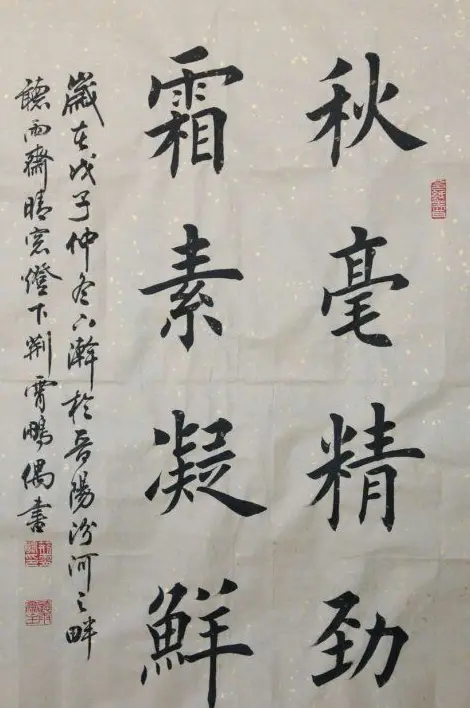 秋毫精勁
霜素凝鮮
歲在戊子仲冬下澣於晉陽汾河之畔
聽雨齋晴窓燈下荊霄鵬偶書